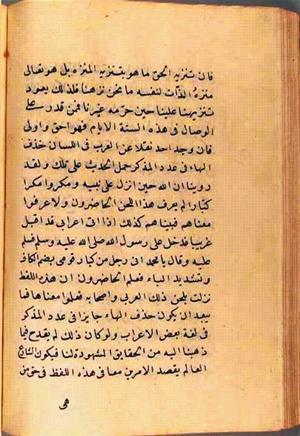 فان تنزيه الحق ما هو بتنزيه المنزه بل هو تعالى
منزه الذات لنفسه ما نحن نزهنا فلذلك يعود
تنزيهنا علينا حين حرمه غيرنا فمن قدر على
الوصال في هذه الستة الايام فهو احق واولى
فان وجد احد نقلا عن العرب في اللسان حذف
الهاء في عدد المذكر حمل الحديث على ذلك ولقد
روينا ان الله حين انزل على نبيه ومكروا مكرا
كبارا لم يعرف هذا اللحن الحاضرون ولا عرفوا
معناه فبينا هم كذلك اذا اتى اعرابي قد اقبل
غريبا فدخل على رسول الله صلى الله عليه وسلم فسلم
عليه وقال يا محمد انى رجل من كبار قومى بضم الكاف
وتشديد الباء فعلم الحاضرون ان هذه اللفظة
نزلت بلحن ذلك العربي واصحابه فعلموا معناها فما
يبعد ان يكون حذف الهاء جائزا في عدد المذكر
في لغة بعض الاعراب ولو كان ذلك لم يقدح فيما
ذهبنا اليه من الحقايق المشهودة لنا فيكون الشارع
العالم يقصد الامرين معا في هذه اللفظ في حق من
هى